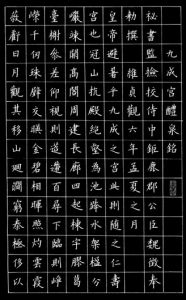 九成宮醴泉銘
秘書監檢校侍中鉅鹿郡公臣魏徵奉
勑撰維貞觀六年孟夏之月
皇帝避暑乎九成之宮此則隨之仁壽
宮也冠山抗殿絕壑為池跨水架楹分
巖竦闕高閣周建長廊四起棟宇膠葛
臺榭參差仰視則迢遞百尋下臨則崢
嶸千仞珠璧交映金碧相暉照灼雲霞
蔽虧日月觀其移山迴澗窮泰極侈以